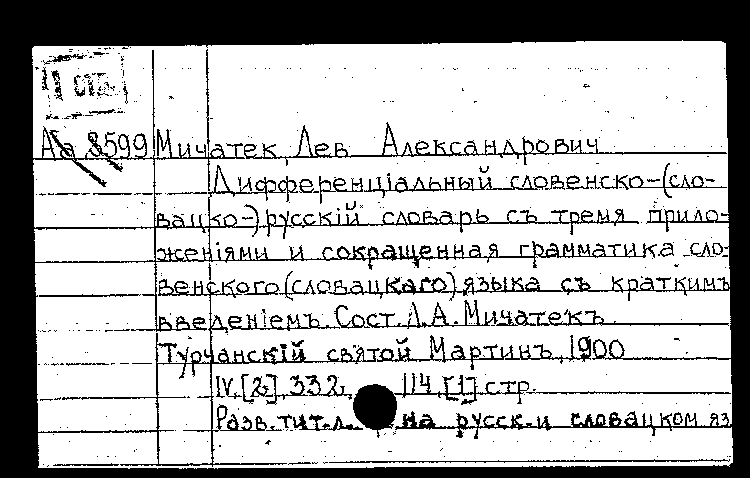 1 СТ.
Аа 8599 Мичатек, Лев Александрович
Дифференціальный словенско-(сло-
вацко-)русскій словарь съ тремя прило-
женіями и сокращенная грамматика сло-
венского(словацкаго) языка съ краткимъ
введеніемъ. Сост. Л.А. Мичатекъ
Турчанскій святой Мартинъ, 1900
IV, [2], 332, 114, [1] стр.
Разв. тит. л. на русск. и словацком яз